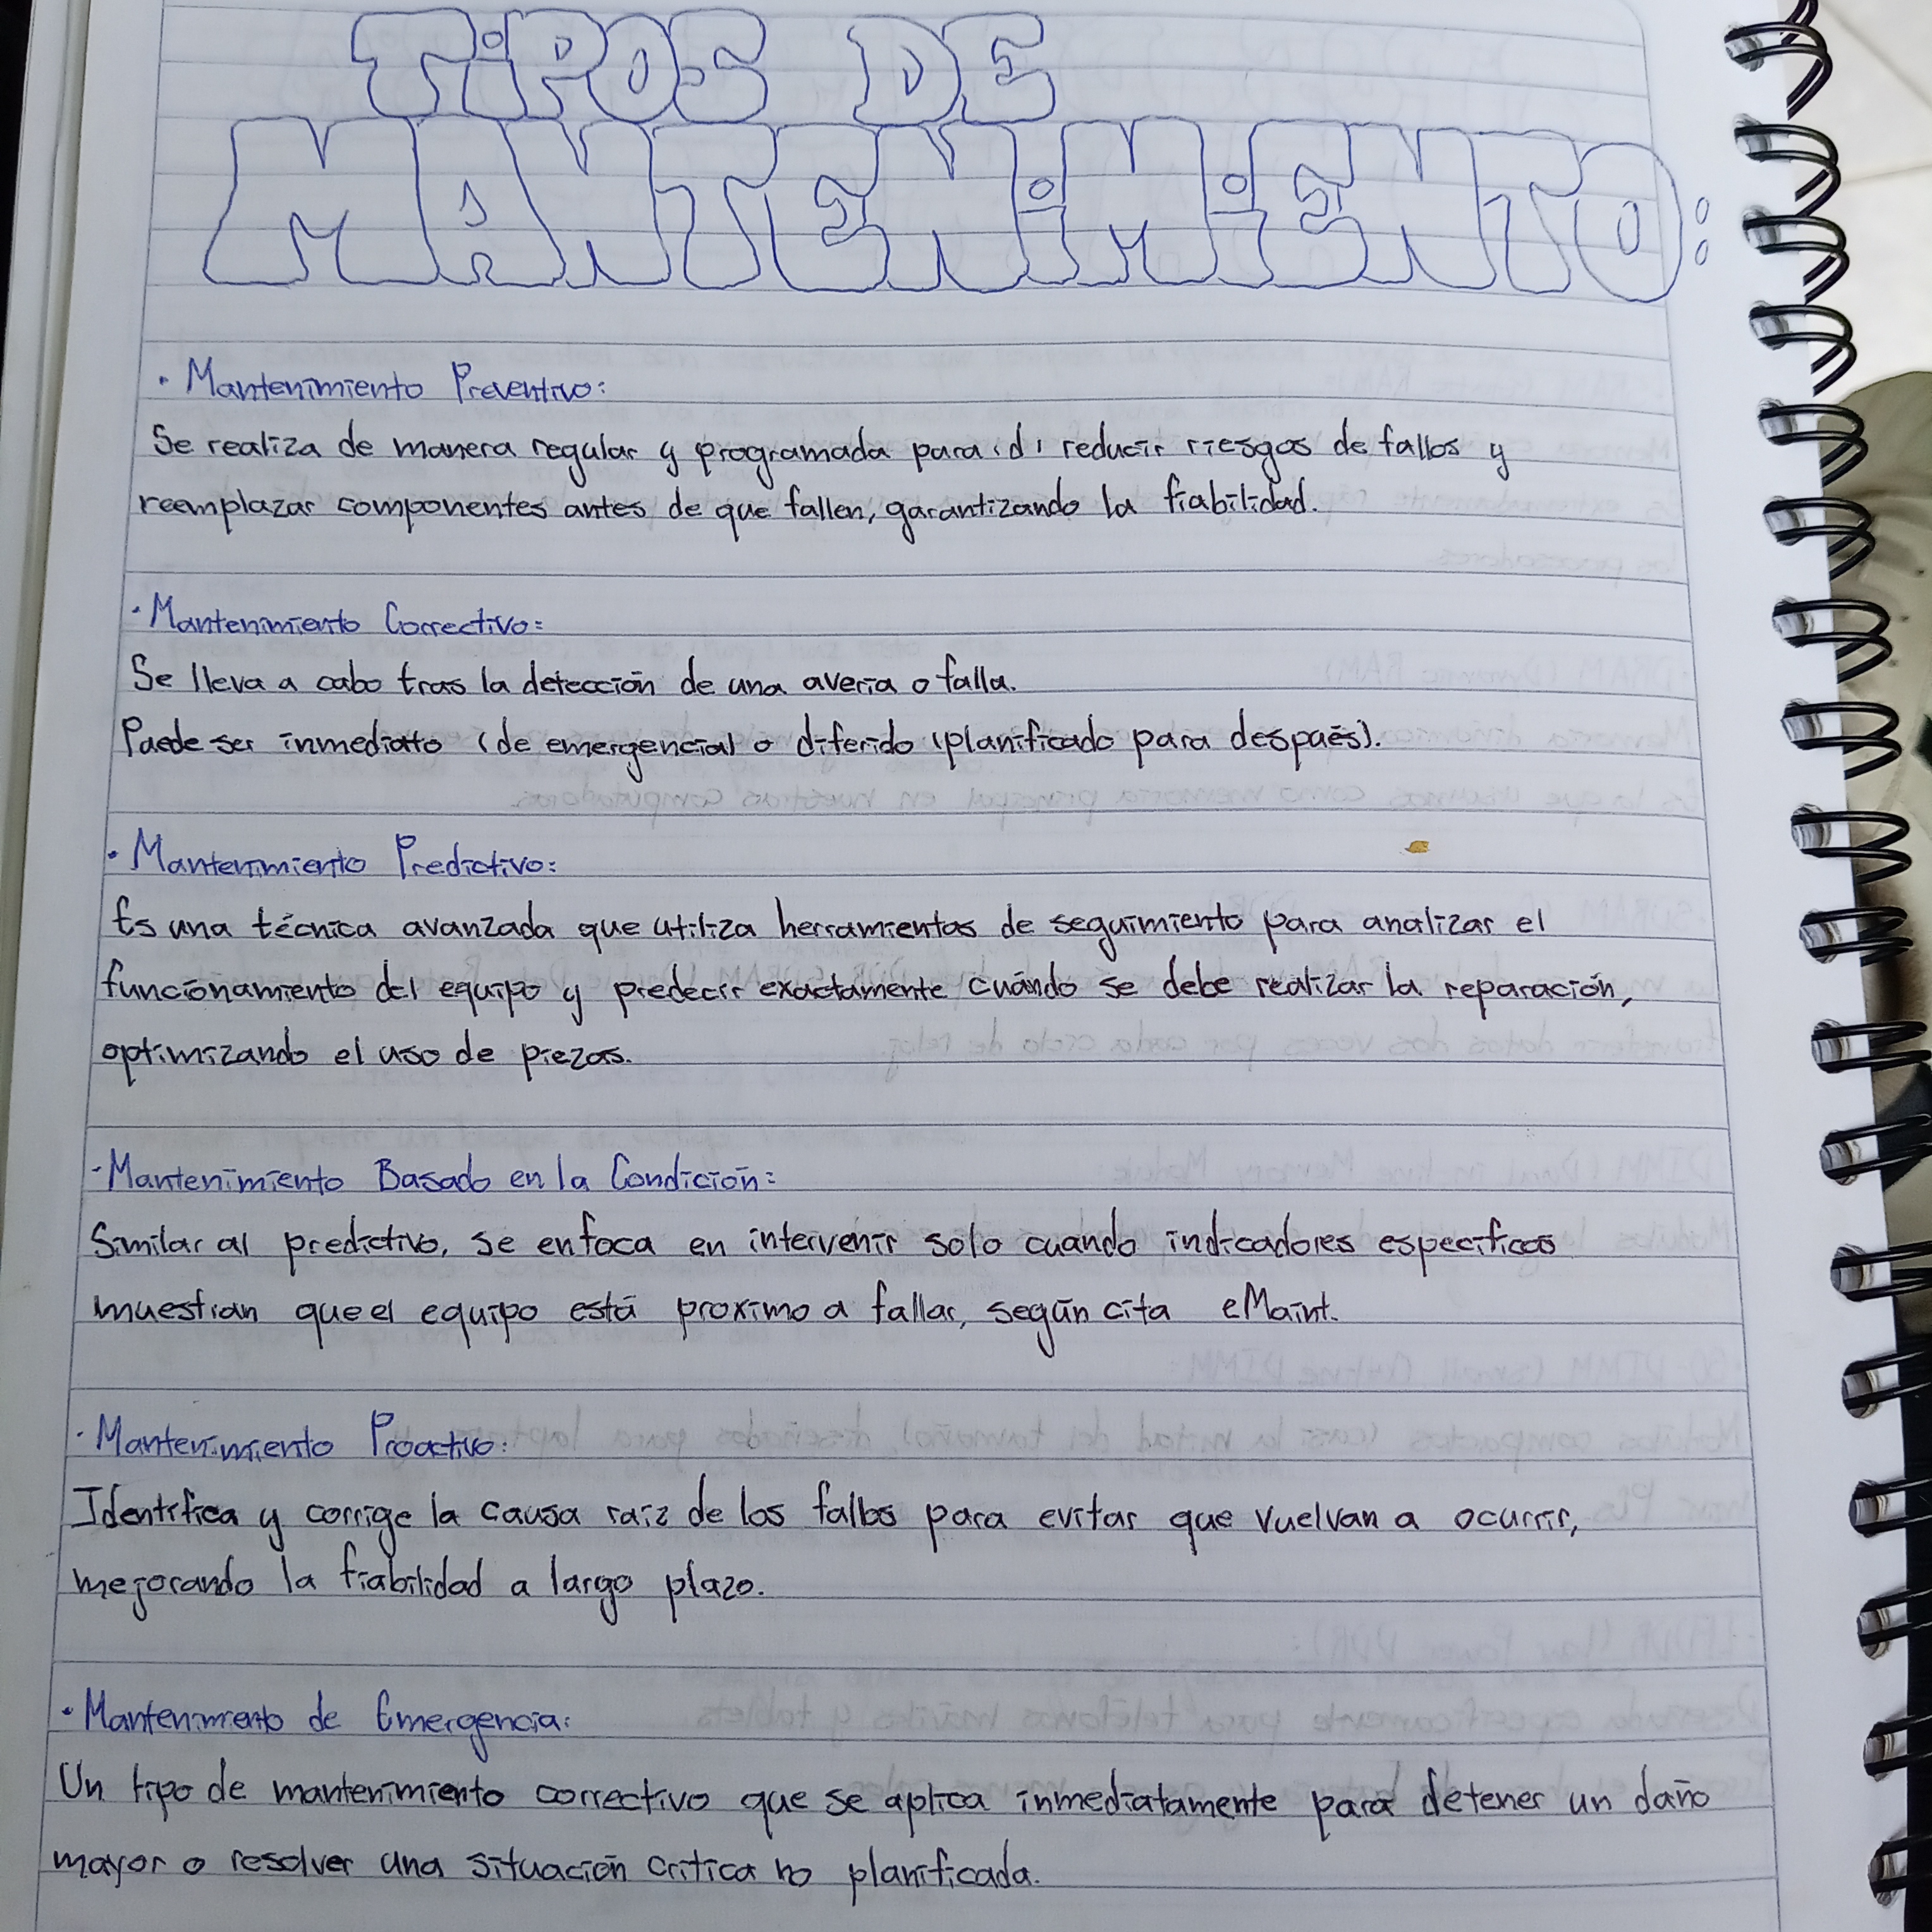 TiPOS DE
MANTENiMiENTO:
· Mantenimiento Preventivo:
Se realiza de manera regular y programada para (d) reducir riesgos de fallos y
reemplazar componentes antes de que fallen, garantizando la fiabilidad.
· Mantenimiento Correctivo:
Se lleva a cabo tras la detección de una avería o falla.
Puede ser inmediatto (de emergencia) o diferido (planificado para después).
· Mantenimiento Predictivo:
Es una técnica avanzada que utiliza herramientas de seguimiento para analizar el
funcionamiento del equipo y predecir exactamente cuándo se debe realizar la reparación,
optimizando el uso de piezas.
· Mantenimiento Basado en la Condición:
Similar al predictivo, se enfoca en intervenir solo cuando indicadores especificos
muestran que el equipo está proximo a fallar, según cita eMaint.
· Mantenimiento Proactivo:
Identifica y corrige la causa raíz de los fallos para evitar que vuelvan a ocurrir,
mejorando la fiabilidad a largo plazo.
· Mantenimiento de Emergencia:
Un tipo de mantenimiento correctivo que se aplica inmediatamente para detener un daño
mayor o resolver una situación crítica no planificada.